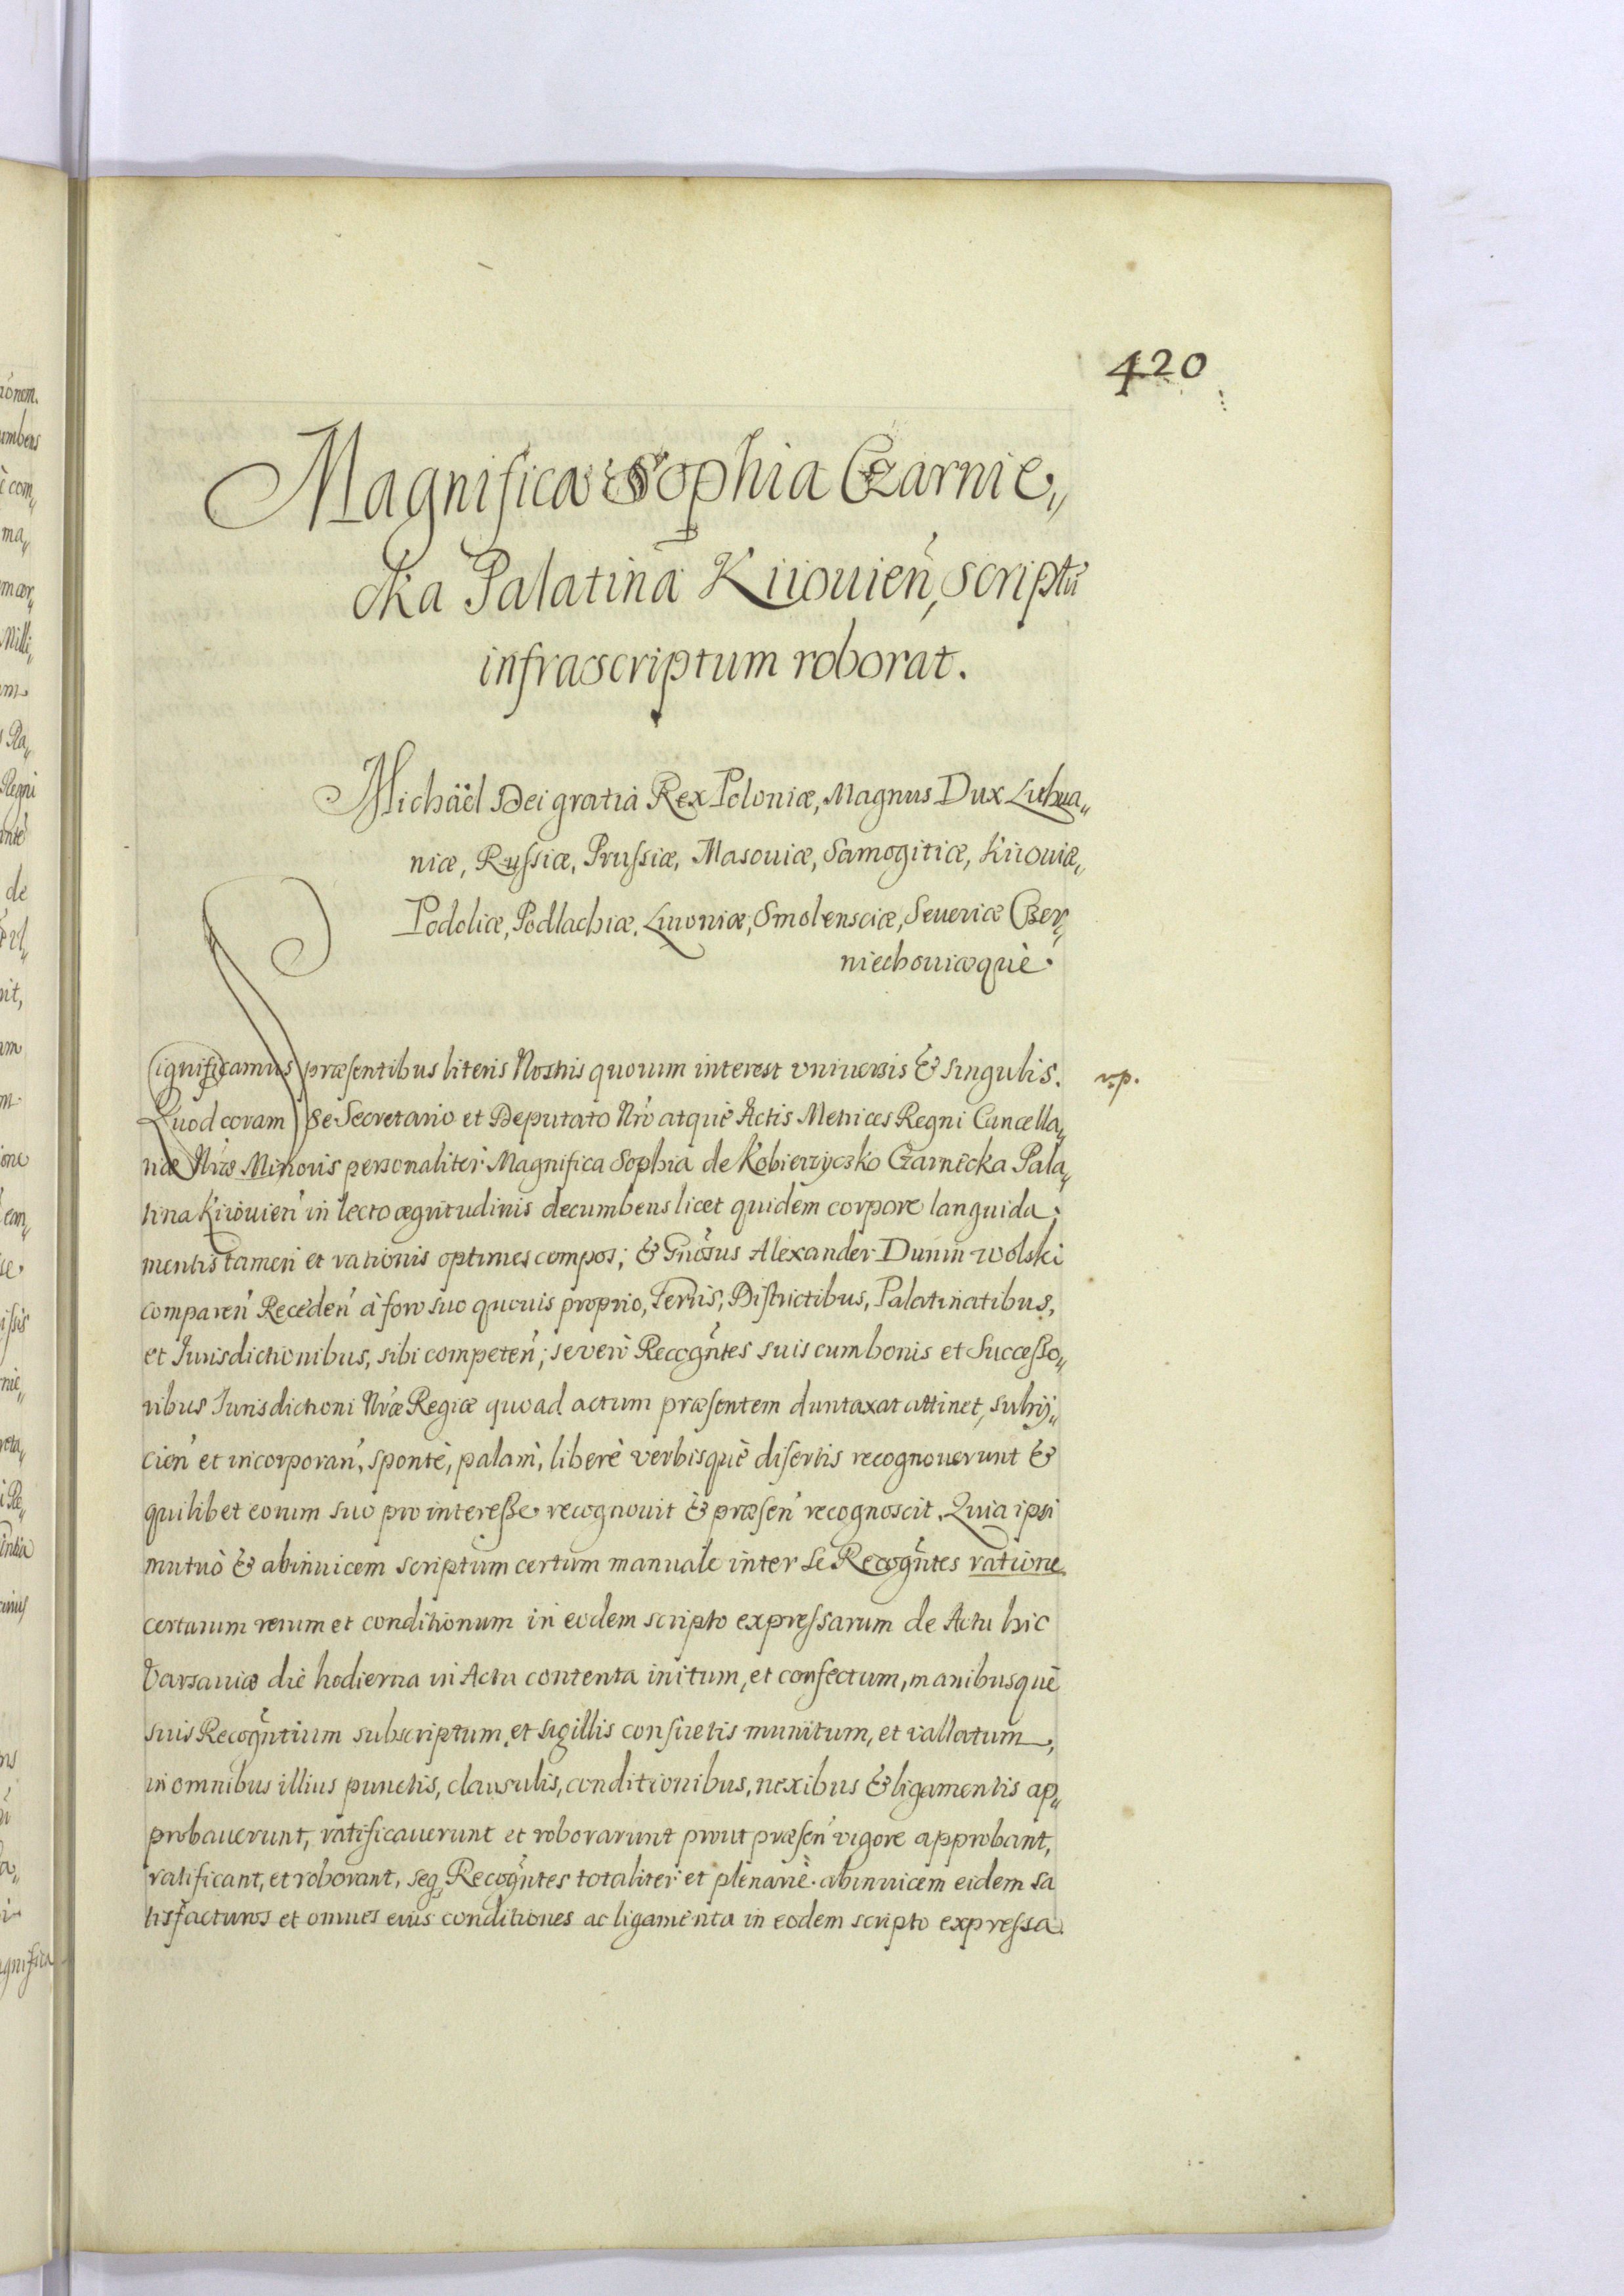 420
Magnifica Sophia Czarnie„
cka Palatina Kiiouień, scriptū
infrascriptum roborat.
Michäel Dei gratia Rex Poloniæ, Magnus Dux Lithua„
niæ, Russiæ, Prussiæ, Masouiæ, Samogitiæ, Kiiouiæ,
Podoliæ, Podlachiæ, Liuoniæ, Smolensciæ, Seueriæ Czer„
niechouiæquè.
Significamus præsentibus literis Nostris quorum interest vniuersis & singulis. v.p.
Quod coram se Secretario et Deputato Nrō atquè Actis Metrices Regni Cancella„
riæ Nræ Minoris personaliter Magnifica Sophia de Kobierzycsko Czarnēcka Pala„
tina Kiiouień in lecto ægritudinis decumbens licet quidem corpore languida;
mentis tamen et rationis optimes compos; & Gnōsus Alexander Dunin wolski
compareń Recedeń à foro suo quouis proprio, Terris, Districtibus, Palatinatibus,
et Jurisdictionibus, sibi competeń; severò Recogñtes suis cum bonis et Successo„
ribus Jurisdictioni Nræ Regiæ quoad actum præsentem duntaxat attinet, subij„
cień et incorporań, spontè, palam, liberè verbisquè disertis recognouerunt &
quilibet eorum suo pro interesse recognouit & præseń recognoscit. Quia ipsi
mutuò & abinuicem scriptum certum manuale inter se Recogñtes ratione
certarum rerum et conditionum in eodem scripto expressarum de Actu hic
Varsauiæ die hodierna in Actu contenta initum, et confectum, manibusquè
suis Recogñtium subscriptum et sigillis consuetis munitum, et vallatum,
in omnibus illius punctis, clausulis, conditionibus, nexibus & ligamentis ap„
probauerunt, ratificauerunt et roborarunt prout præseń vigore approbant,
ratificant, et roborant, seq₃ Recogñtes totaliter et plenariè abinuicem eidem sa
tisfacturos et omnes eius conditiones ac ligamenta in eodem scripto expressa